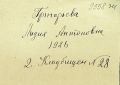 Григорьева
Лидия Антоновна
1926
2. Кладбищен. № 28